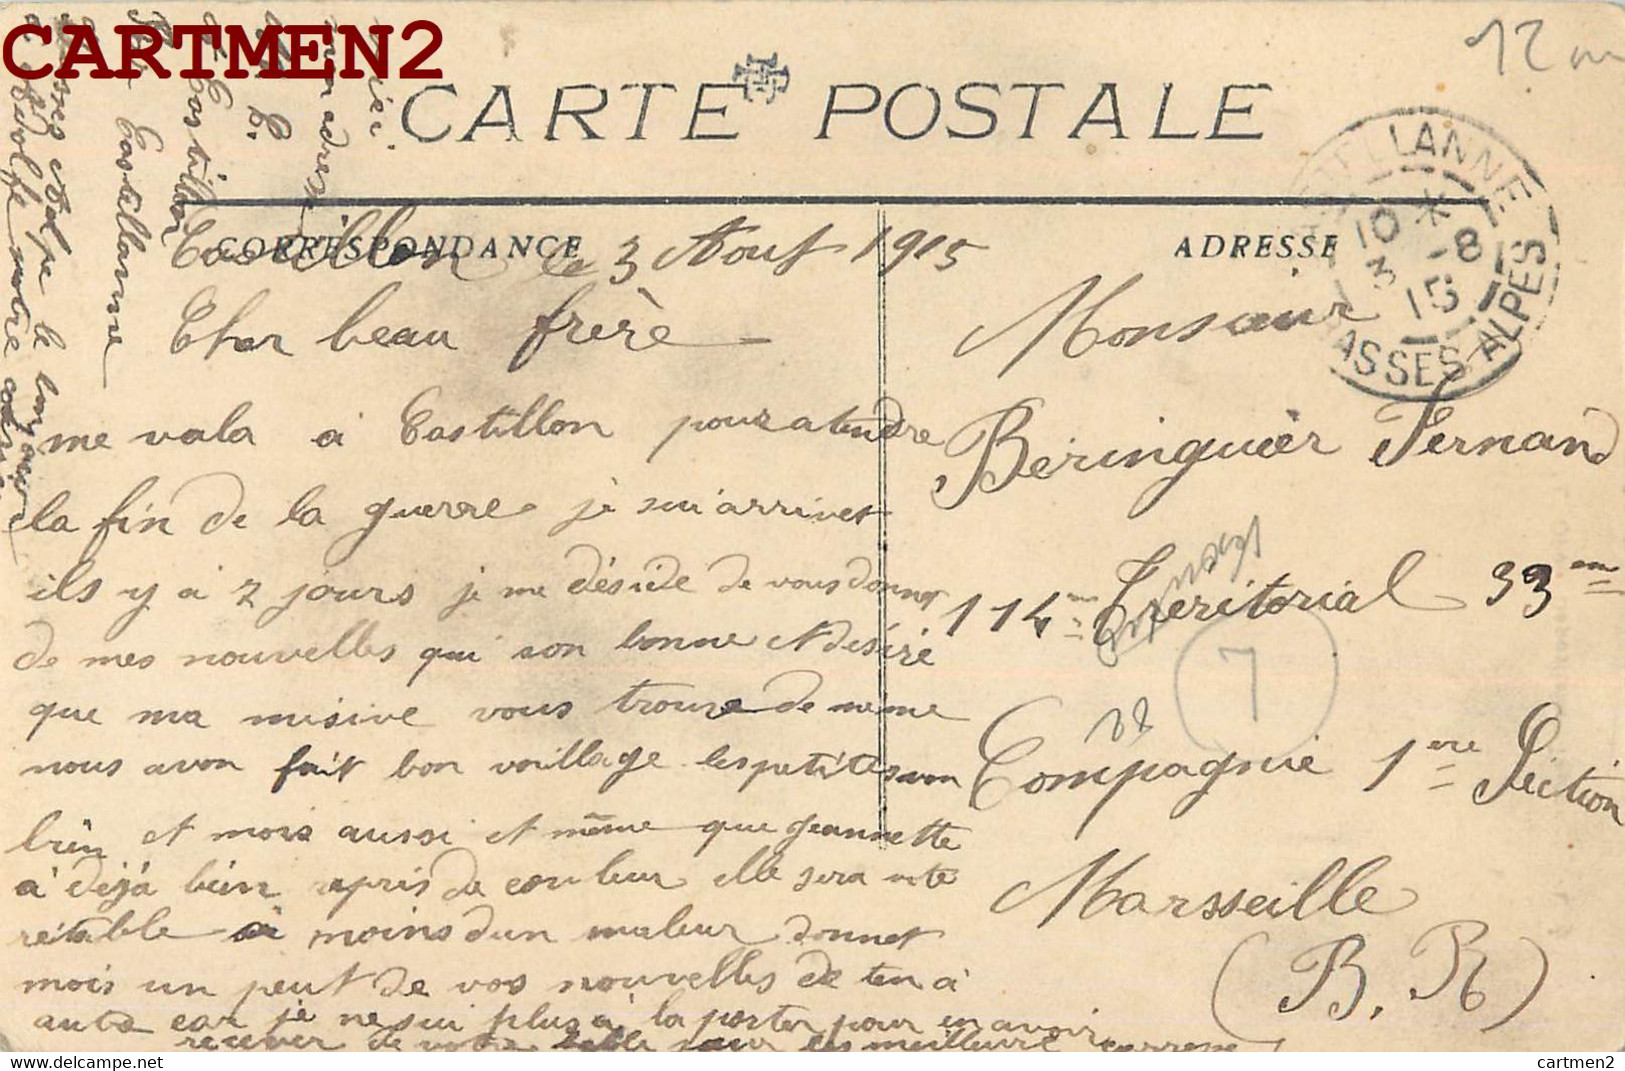 CARTMEN2
CARTE POSTALE
CORRESPONDANCE
ADRESSE
CASTELLANNE
10 * 3 -8 15
BASSES-ALPES
12
Castillon le 3 Aout 1915
Cher beau frère
me vala a Castillon pour atendre
la fin de la guerre je sui arrivet
ils y a 2 jours je me déside de vous donner
de mes nouvelles qui son bonne et désire
que ma misive vous trouve de meme
nous avon fait bon voillage les petites von
bien et mois aussi et même que jeannette
a déjà bien repris de couleur elle sera
à moins dun maleur donnet
mois un peut de vos nouvelles de ten à
autre car je ne sui plus à la porter pour en avoir
recever de votre belle sœur les meilleure
Monsieur
Béringuier Fernand
114me Teritorial 33eme
7
Compagnie 1ere Section
Marsseille
(B. R)
mon adresse
B. C.
à Castillon
par Castellanne
le bonjour
a Adolphe notre
cartmen2